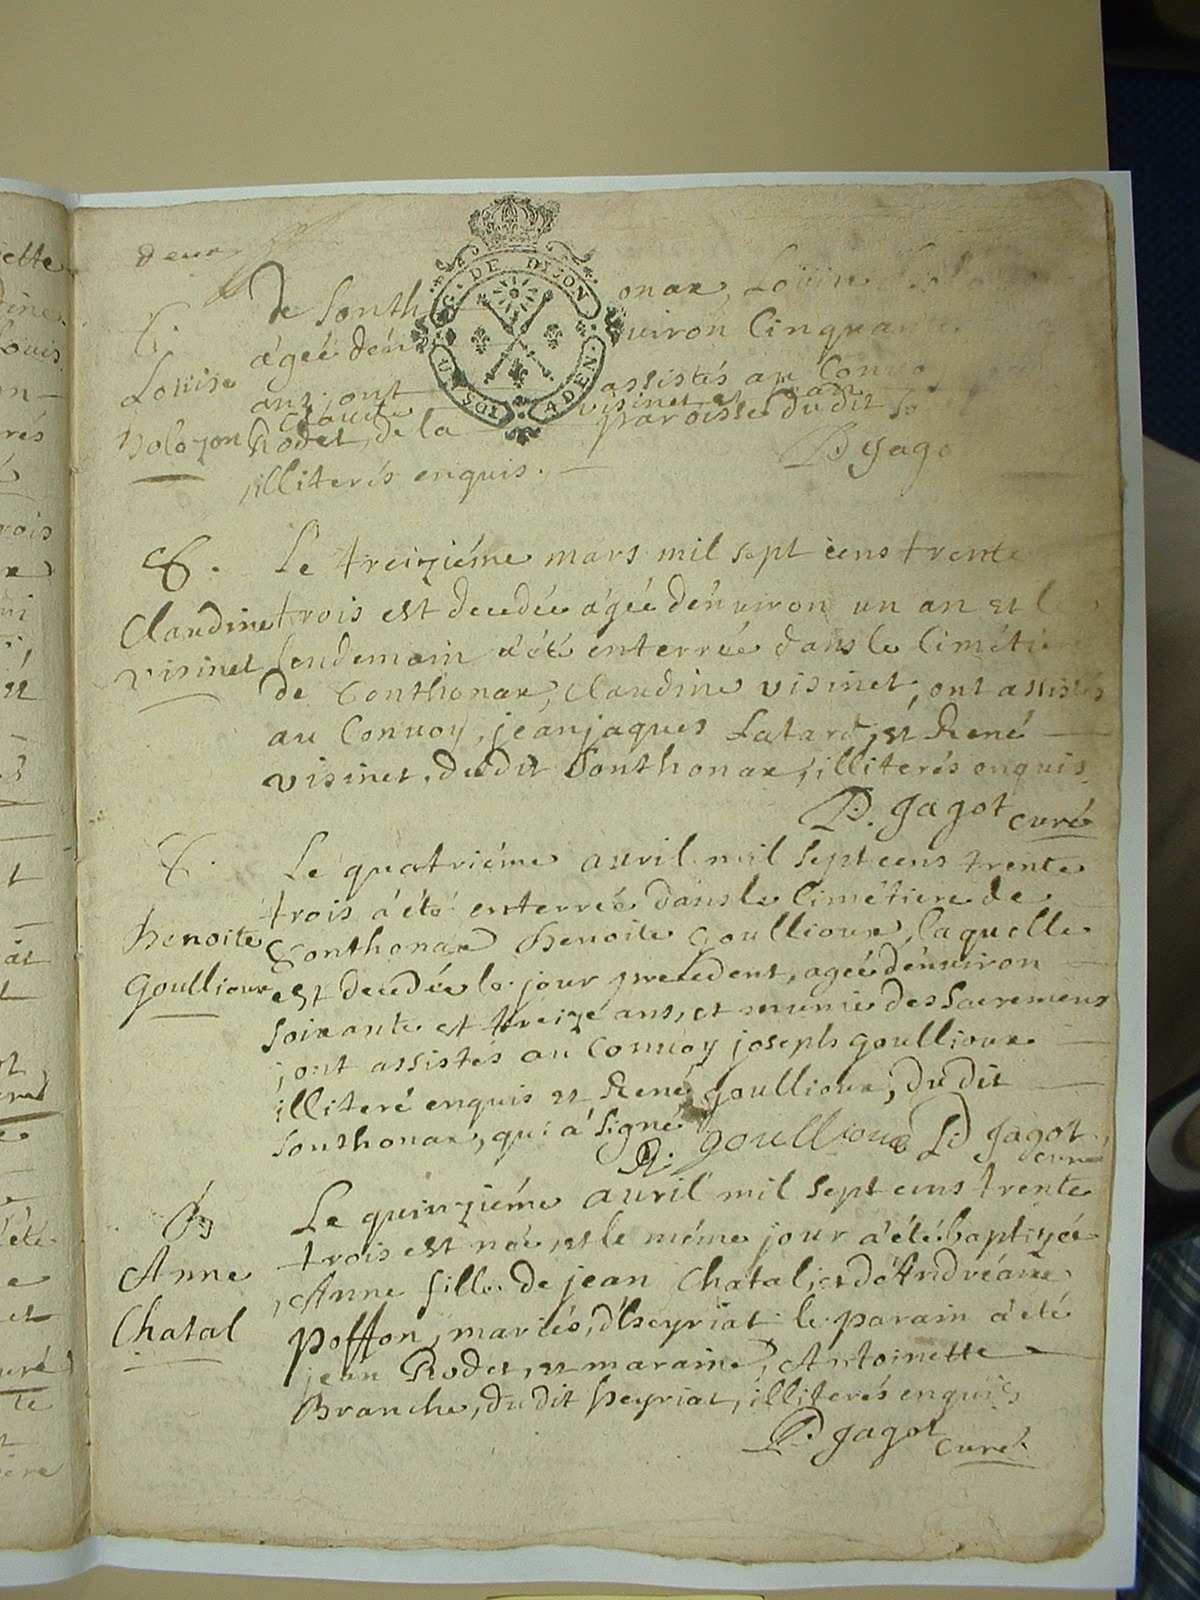 deux
de Sonth onax, Louise
S.
Louise
Holozon
agée d'en viron Cinquante
ans, ont assistés au Convo
Claude visinet et jean
Rodet, de la paroisse dudit So
illiterés enquis. P. Jago
GEN. DE DIJON
S.
Claudine
visinet
Le treiziéme mars mil sept cens trente
trois est decedée agée d'environ un an et le
lendemain a été enterrée dans le Cimétiere
de Sonthonax, Claudine visinet, ont assistés
au Convoy, jean jaques Latard, et René
visinet, dudit Sonthonax, illiterés enquis
P. Jagot curé
S.
Benoite
Goullioux
Le quatriéme avril mil sept cens trente
trois a été enterrée dans le Cimétiere de
Sonthonax Benoite Goullioux, laquelle
est decedée le jour precedent, agée d'environ
soixante et treize ans, et munie des Sacremens
, ont assistés au Convoy joseph Goullioux
illiteré enquis et René Goullioux, du dit
Sonthonax, qui a signé
R. goullioux P. Jagot, curé
B
Anne
Chatal
Le quinziéme avril mil sept cens trente
trois est née, et le même jour a été baptizée
, Anne fille de jean Chatal, et d'Andréane
Poffon, mariés, d'heyriat le parain a été
jean Rodet, et maraine, Antoinette
Branche, du dit heyriat, illiterés enquis
P. Jagot curé.